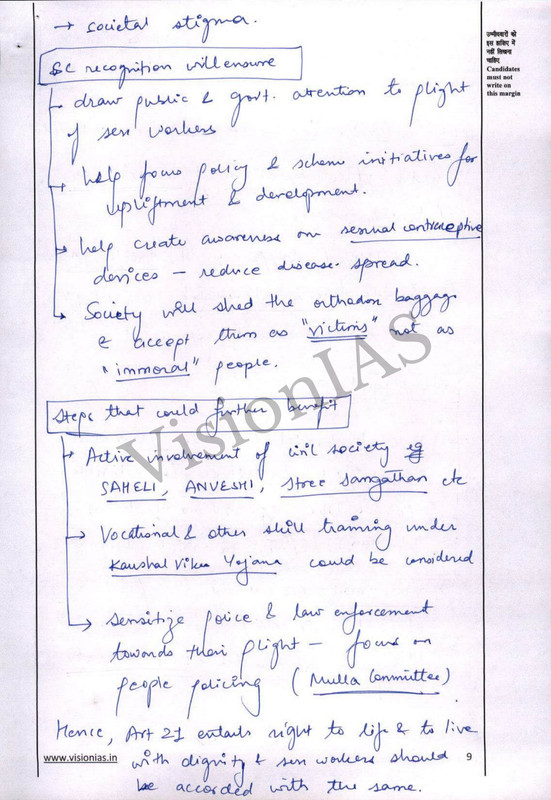 → societal stigma.
SC recognition will ensure
draw public & govt. attention to plight
of sex workers
help focus policy & scheme initiatives for
upliftment & development.
help create awareness on sexual contraceptive
devices – reduce disease spread.
Society will shed the orthodox baggage
& accept them as "victims" not as
"immoral" people.
Steps that could further benefit
Active involvement of civil society eg
SAHELI, ANVESHI, Stree Sangathan etc
Vocational & other skill training under
Kaushal Vikas Yojana could be considered
Sensitize police & law enforcement
towards their plight – focus on
people policing (Mulla Committee)
Hence, Art 21 entails right to life & to live
with dignity & sex workers should
be accorded with the same.
उम्मीदवारों को
इस हाशिए में
नहीं लिखना
चाहिए
Candidates
must not
write on
this margin
VisionIAS
www.visionias.in
9